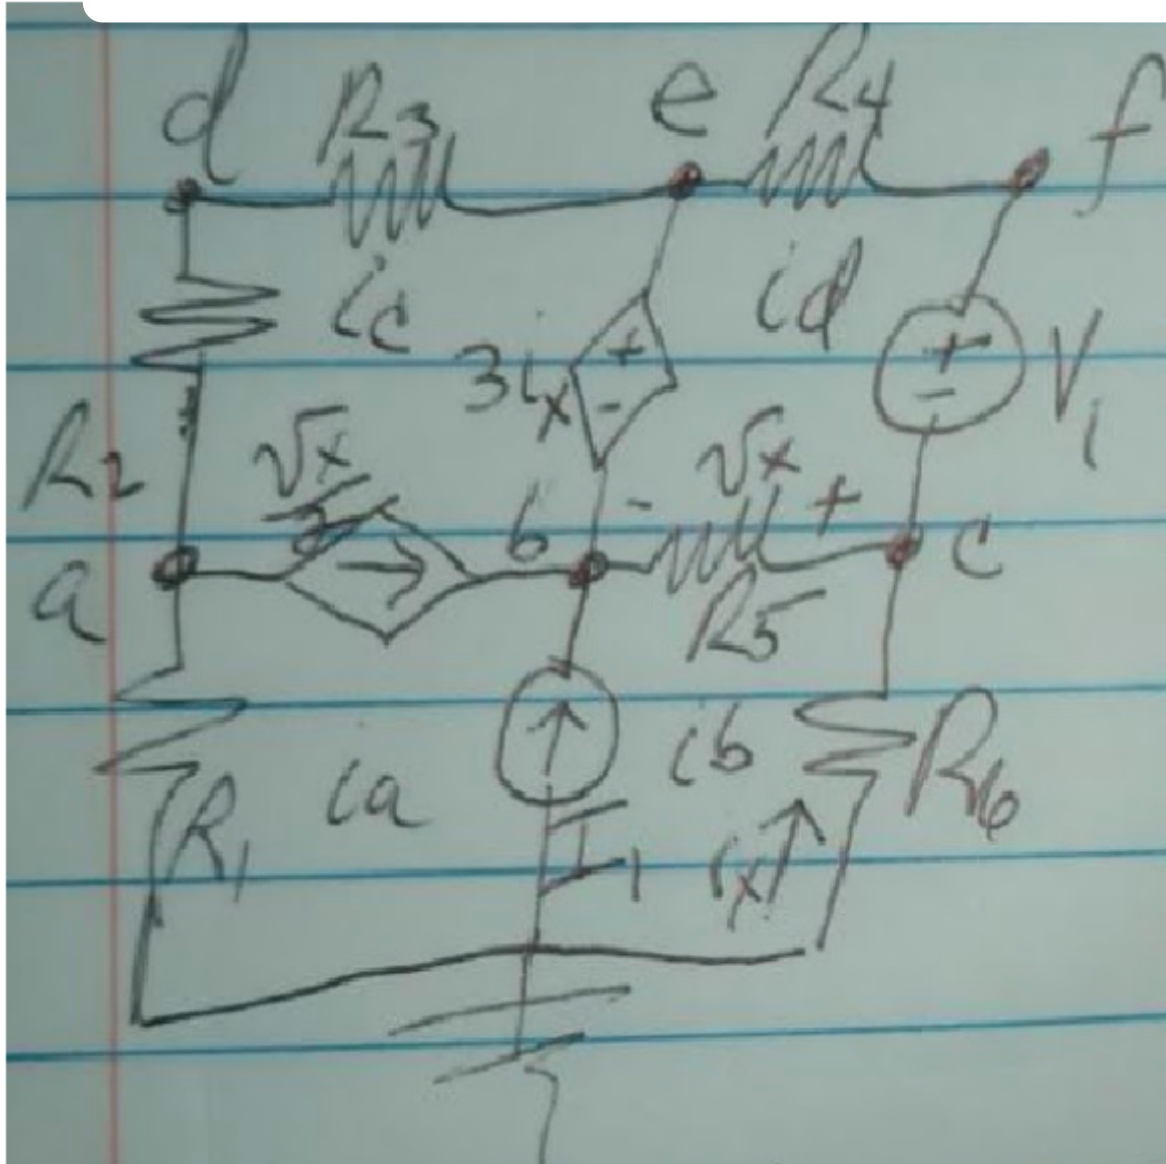 d R3 e R4 f
ic id
3ix + - + - V1
R2 Vx/2 - Vx +
a b c
R5
ia ib R6
R1 I1 ix